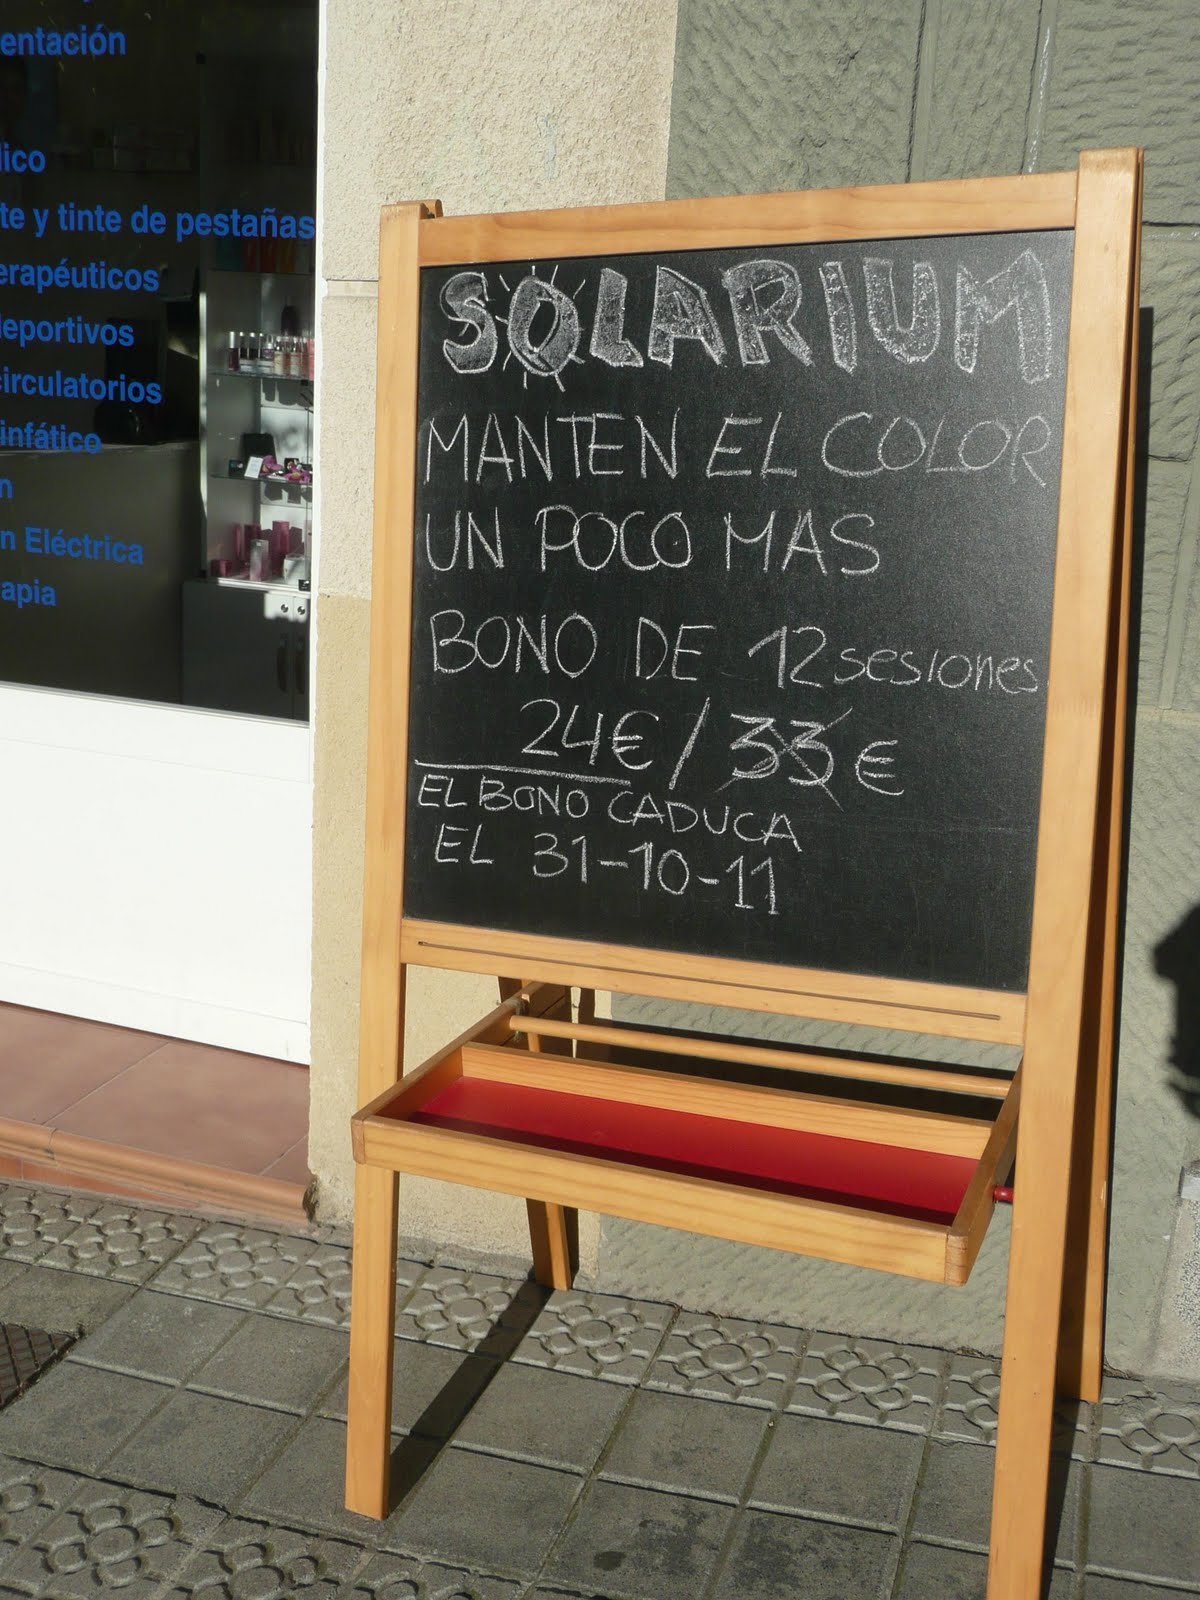 entación
te y tinte de pestañas
erapéuticos
deportivos
circulatorios
infático
n
n Eléctrica
apia
SOLARIUM
MANTEN EL COLOR
UN POCO MAS
BONO DE 12 sesiones
24€ / 33 €
EL BONO CADUCA
EL 31-10-11